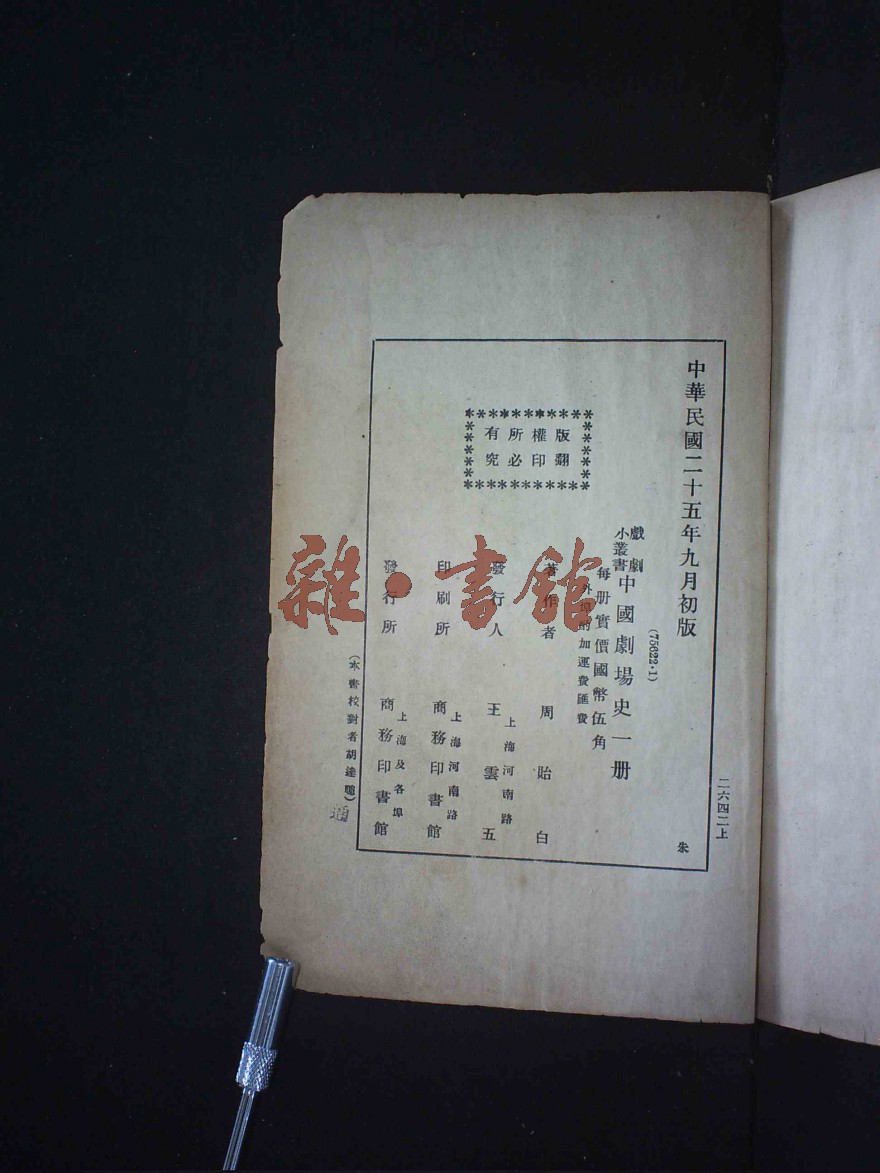 中華民國二十五年九月初版
二六四二上
朱
(75622·1)
戲劇小叢書 中國劇場史一册
每册實價國幣伍角
外埠酌加運費匯費
版權所有
翻印必究
著作者 周貽白
發行人 王雲五
上海河南路
印刷所 商務印書館
上海河南路
發行所 商務印書館
上海及各埠
(本書校對者胡達聰)
雜·書館